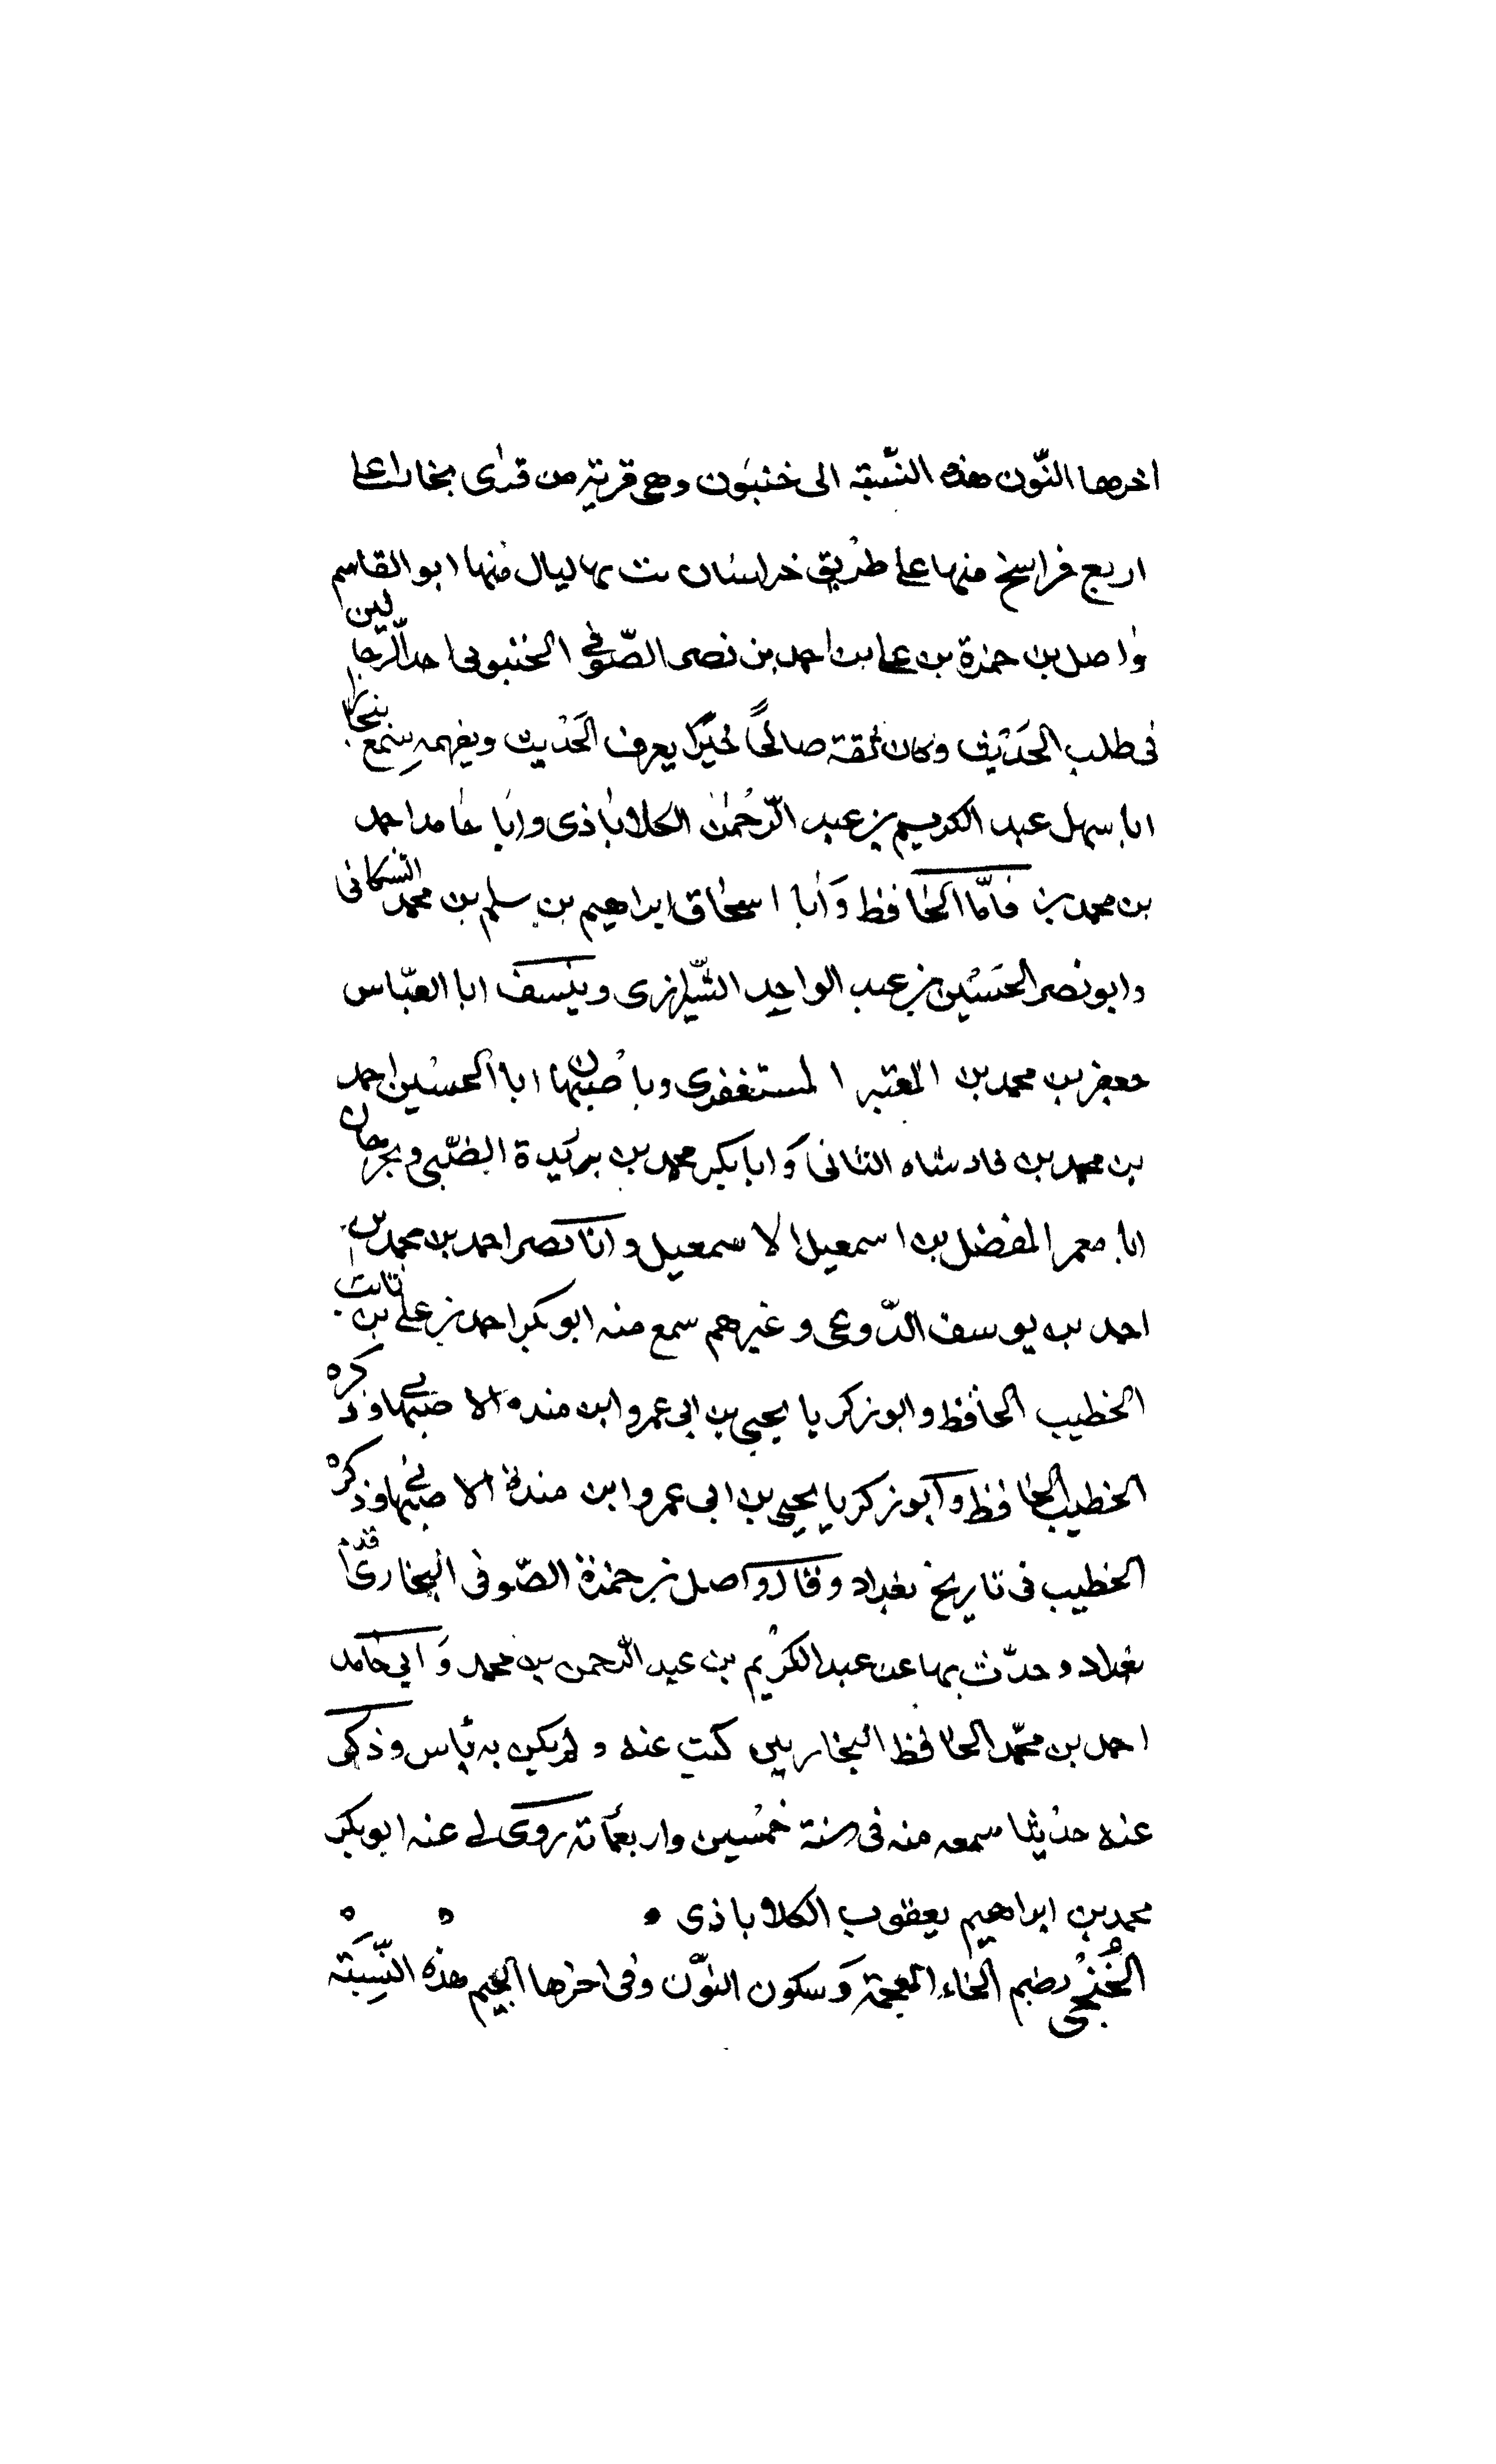 اخرها النّون هذه النّسبة الى خنبون وهى قرية من قرى بخارا على
اربع فراسخ منها على طريق خراسان بت بها ليال منها ابو القاسم
واصل بن حمزة بن على بن احمد بن نصر الصّوفى الخنبونى احد الرّحالين
فى طلب الحَديث وكان ثقة صالحًا خيّرًا يعرف الحَديث ويفهمه سمع ببخارا
ابا سهل عبد الكريم بن عبد الرّحمن الكلاباذى وابا حامد احمد
بن محمد بن مامّا الحافظ وَابا اسحاق ابراهيم بن سلم بن محمد الشكانى
وابو نصر الحسَين بن عبد الواحد الشّيرازى وبنسف ابا العبّاس
جعفر بن محمد بن المعتبر المستغفرى وباصبهان ابا الحسين احمد
بن محمد بن فادشاه الثانى وَابا بكر محمد بن بريدة الضّبى وبجرجان
ابا معمر المفضل بن اسمعيل الاسمعيل وابا نصر احمد بن محمد بن
احمد بن يوسف الدّوعى وغيرهم سمع منه ابو بكر احمد بن على بن ثابت
الخطيب الحافظ وابو زكريا يحيى بن ابى عمرو ابن منده الاصبهانى وذكره
الخطيب الحافظ وَابو زكريا يحيى بن ابى عمرو ابن مندة الاصبهانى وذكره
الخطيب فى تاريخ بغداد وقال واصل بن حمزة الصّوفى البخارى قدم
بغداد وحدّث بها عن عبد الكريم بن عبد الرّحمن بن محمد وَابى حامد
احمد بن محمّد الحافظ البخاريين كتبت عنه ولم يكن به بأس وذكر
عنه حديثا سمعه منه فى سنة خمسين واربعمأئة روى لى عنه ابو بكر
محمد بن ابراهيم يعقوب الكلاباذى
الخُنْجى بضم الخاء المعجمة وَسكون النّون وفى اخرها الجيم هذه النّسِبَة